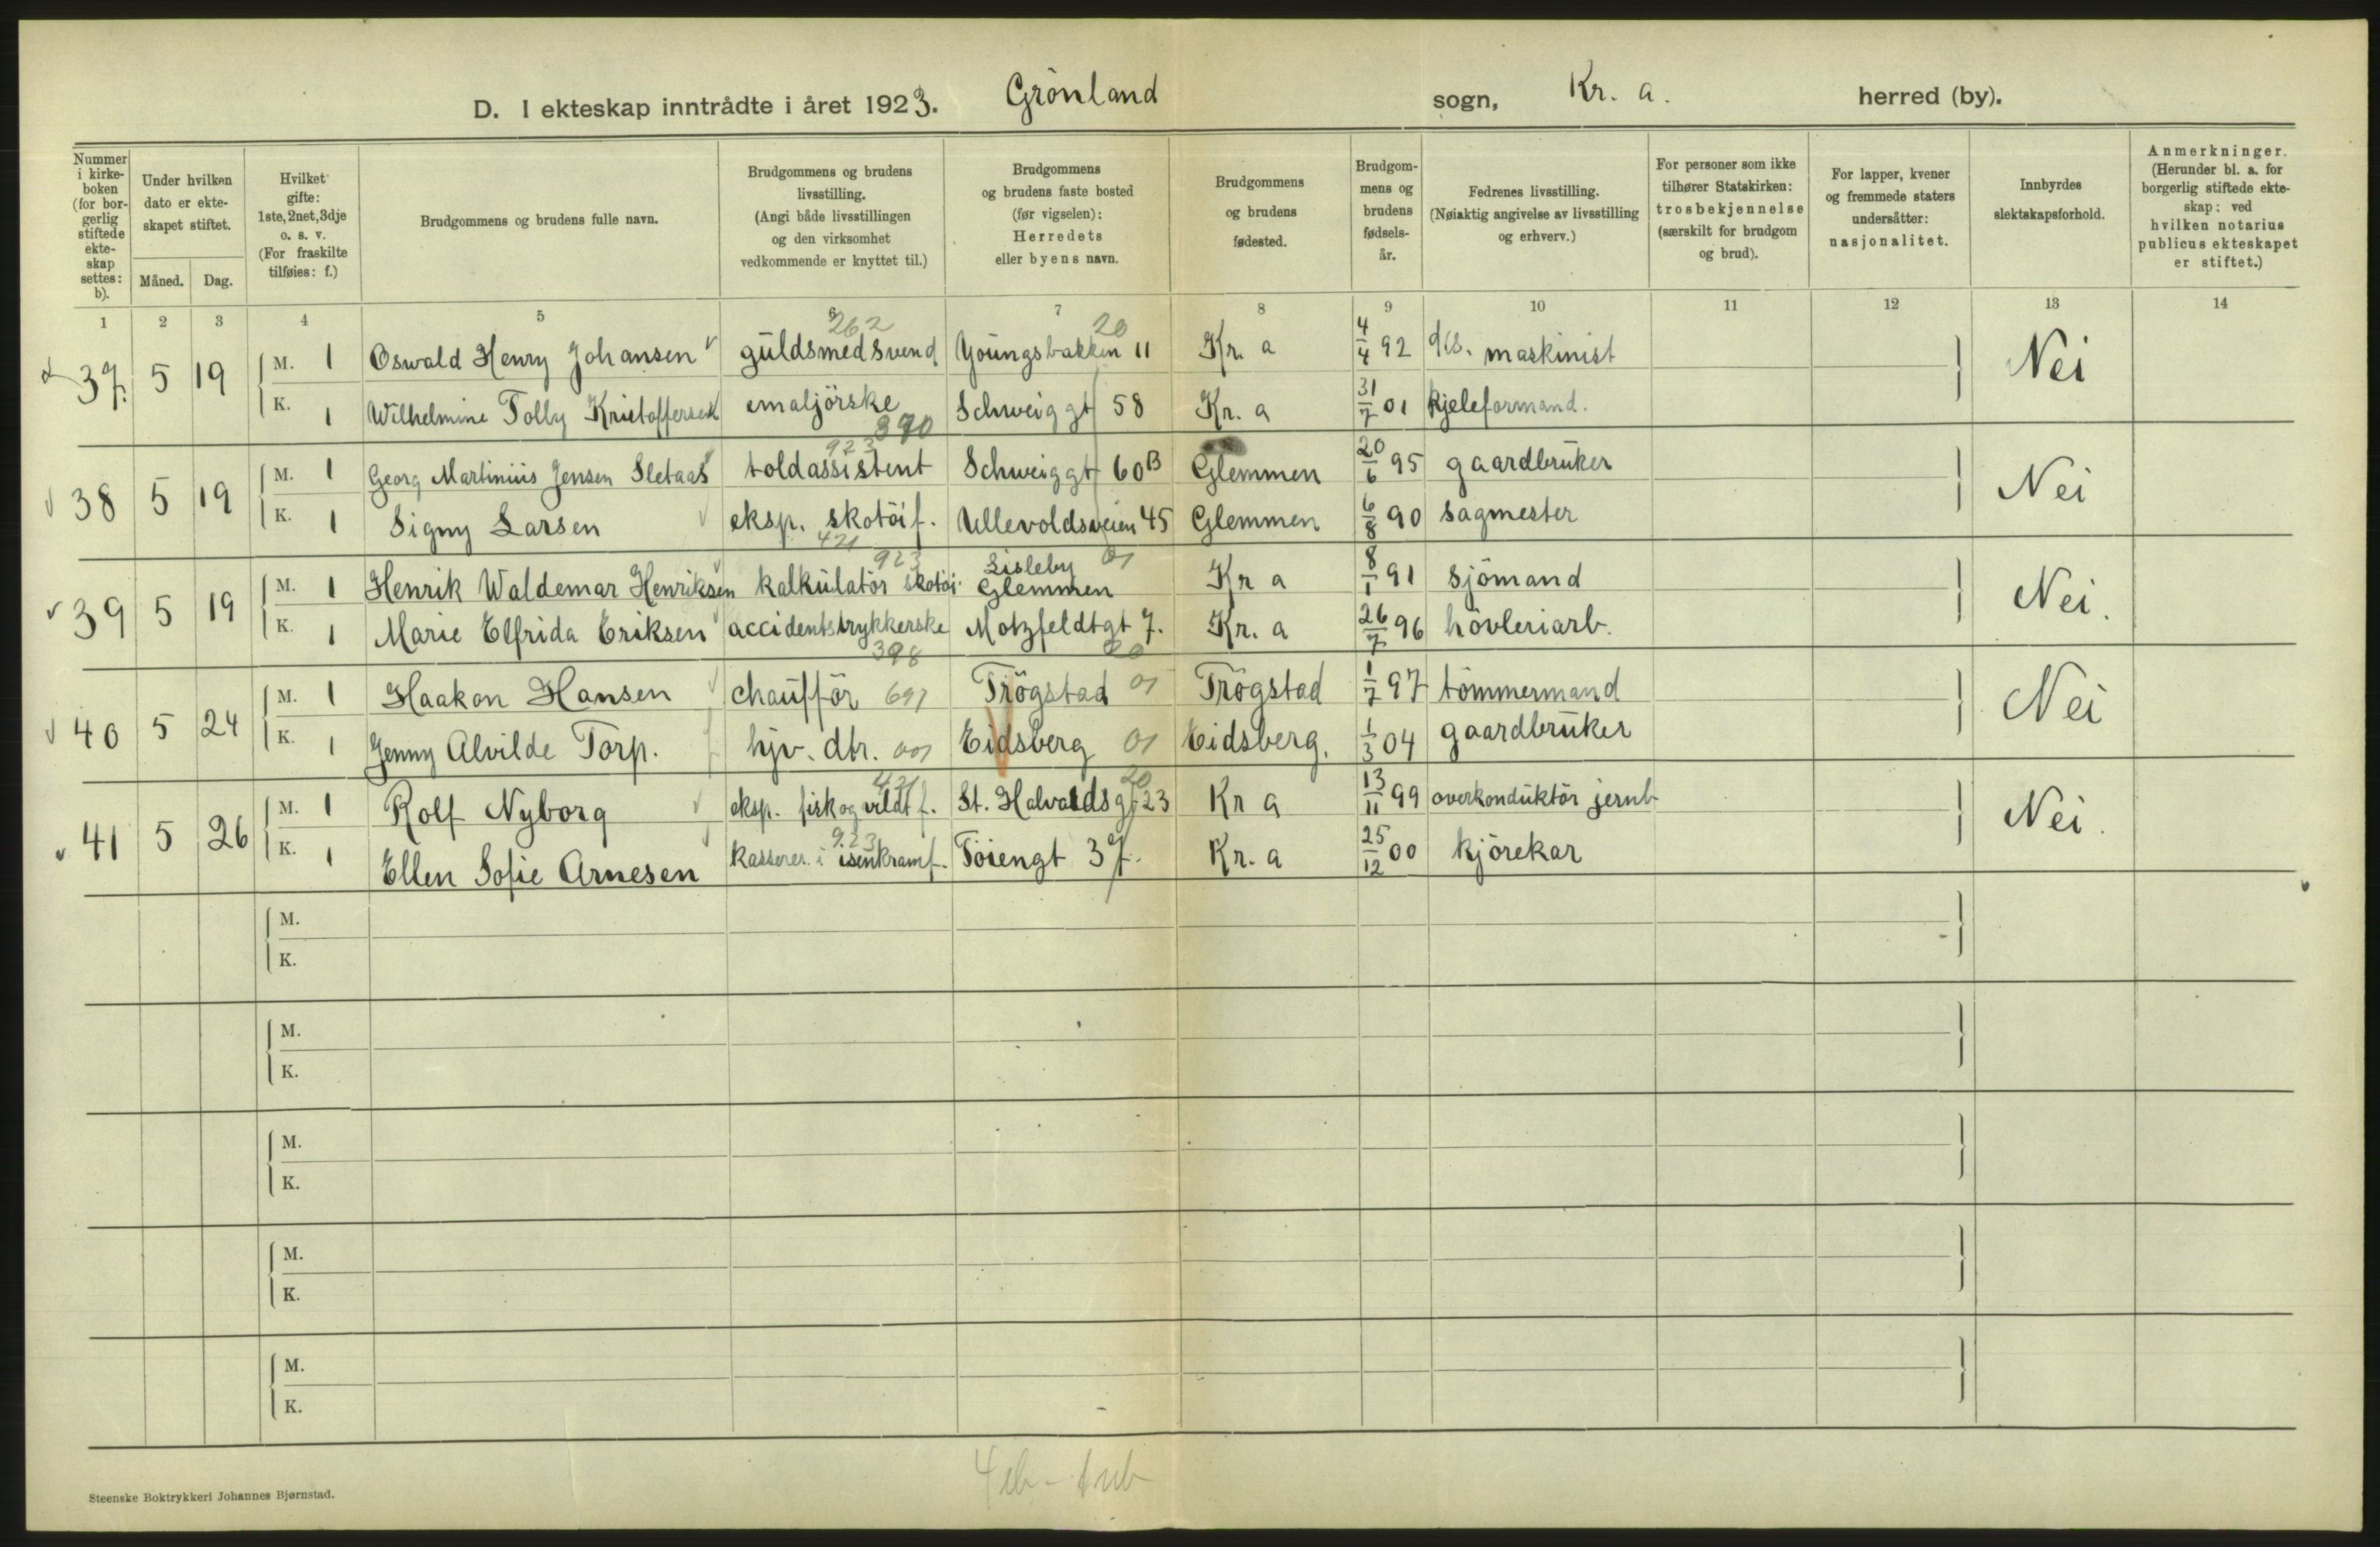 D. I ekteskap inntrådte i året 1923. Grönland sogn, Kr. a. herred (by).
Nummer i kirke-boken (for bor-gerlig stiftede ekte-skap settes: b).
Under hvilken dato er ekte-skapet stiftet.
Måned. Dag.
Hvilket gifte: 1ste, 2net, 3dje o. s. v. (For fraskilte tilføies: f.)
Brudgommens og brudens fulle navn.
Brudgommens og brudens livsstilling. (Angi både livsstillingen og den virksomhet vedkommende er knyttet til.)
Brudgommens og brudens faste bosted (før vigselen): Herredets eller byens navn.
Brudgommens og brudens fødested.
Brudgom-mens og brudens fødsels-år.
Fedrenes livsstilling. (Nøiaktig angivelse av livsstilling og erhverv.)
For personer som ikke tilhører Statskirken: trosbekjennelse (særskilt for brudgom og brud).
For lapper, kvener og fremmede staters undersåtter: nasjonalitet.
Innbyrdes slektskapsforhold.
Anmerkninger. (Herunder bl. a. for borgerlig stiftede ekte-skap: ved hvilken notarius publicus ekteskapet er stiftet.)
1 2 3 4 5 6 7 8 9 10 11 12 13 14
262 20
37. 5 19 M. 1 Oswald Henry Johansen guldsmedsvend Youngsbakken 11 Kr. a 4/4 92 maskinist Nei
K. 1 Wilhelmine Tolly Kristoffersen emaljörske Schweiggt 58 Kr. a 31/7 01 kjeleformand.
390
923
38 5 19 M. 1 Georg Martinius Jensen Sletaas toldassistent Schweiggt 60B Glemmen 20/6 95 gaardbruker Nei
K. 1 Signy Larsen eksp. skotöif. Ullevoldsveien 45 Glemmen 6/8 90 sagmester
421
923 Lisleby 01
39 5 19 M. 1 Henrik Waldemar Henriksen kalkulatör skotöi. Glemmen Kr a 8/1 91 sjömand Nei.
K. 1 Marie Elfrida Eriksen accidentstrykkerske Motzfeldtgt 7. Kr. a 26/7 96 hövleriarb.
398 20
40 5 24 M. 1 Haakon Hansen chaufför 691 Trögstad 01 Trögstad 1/7 97 tömmermand Nei
K. 1 Jenny Alvilde Torp. hjv. dtr. 001 Eidsberg 01 Eidsberg. 1/3 04 gaardbruker
421 20
41 5 26 M. 1 Rolf Nyborg eksp. fisk og vildtf. St. Halvardsgt 23 Kr a 13/11 99 overkonduktör jernb Nei.
923
K. 1 Ellen Sofie Arnesen kasserer. i isenkramf. Töiengt 37. Kr. a 25/12 00 kjörekar
M.
K.
M.
K.
M.
K.
M.
K.
M.
K.
Steenske Boktrykkeri Johannes Bjørnstad.